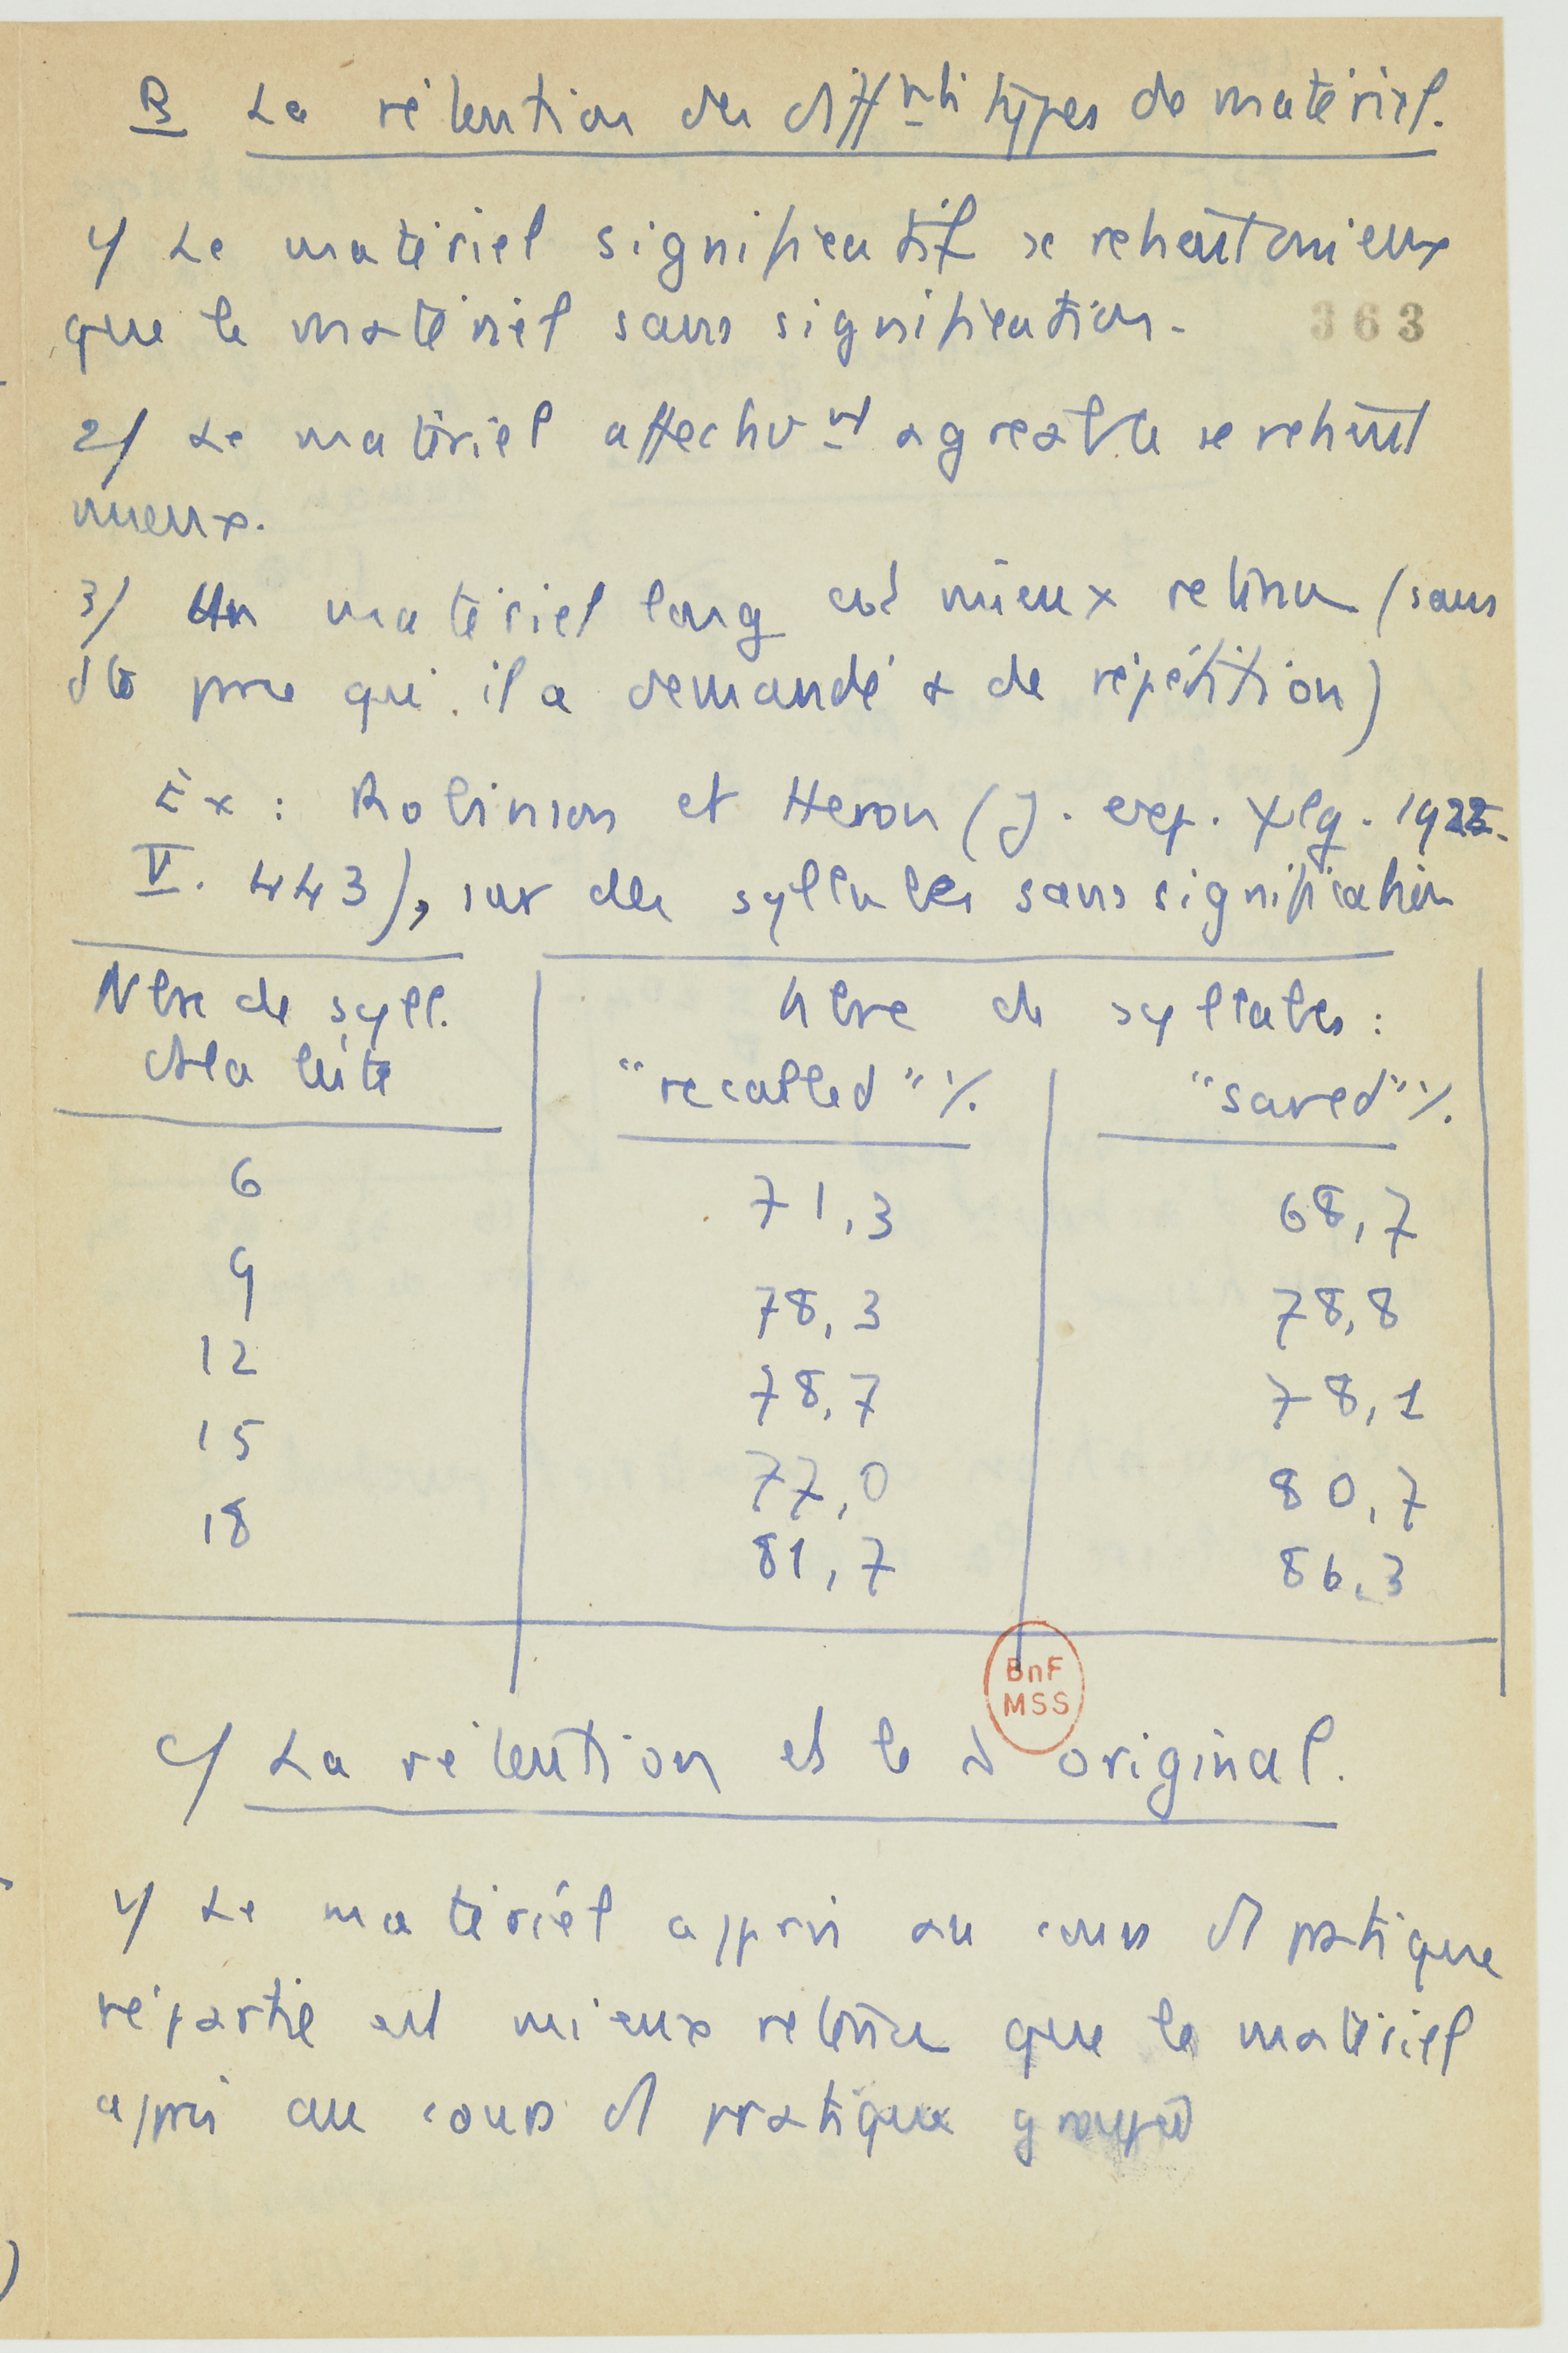 B La rétention des diff<sup>nts</sup> types de matériel.
1/ Le matériel significatif se retient mieux
que le matériel sans signification.
363
2/ Le matériel affectiv<sup>nt</sup> agréable se retient
mieux.
3/ Un matériel long est mieux retenu (sans
dte pce qu'il a demandé + de répétition)
Ex : Robinson et Heron (J. exp. ψlg. 1922.
V. 443), sur des syllabes sans signification
Nbre de syll. Nbre de syllabes :
ds la liste "recalled" % "saved" %
6 71,3 68,7
9 78,3 78,8
12 78,7 78,1
15 77,0 80,7
18 81,7 86,3
BnF
MSS
C/ La rétention et le original.
1/ Le matériel appris au cours d pratique
répartie est mieux retenu que le matériel
appris au cours d pratique groupée